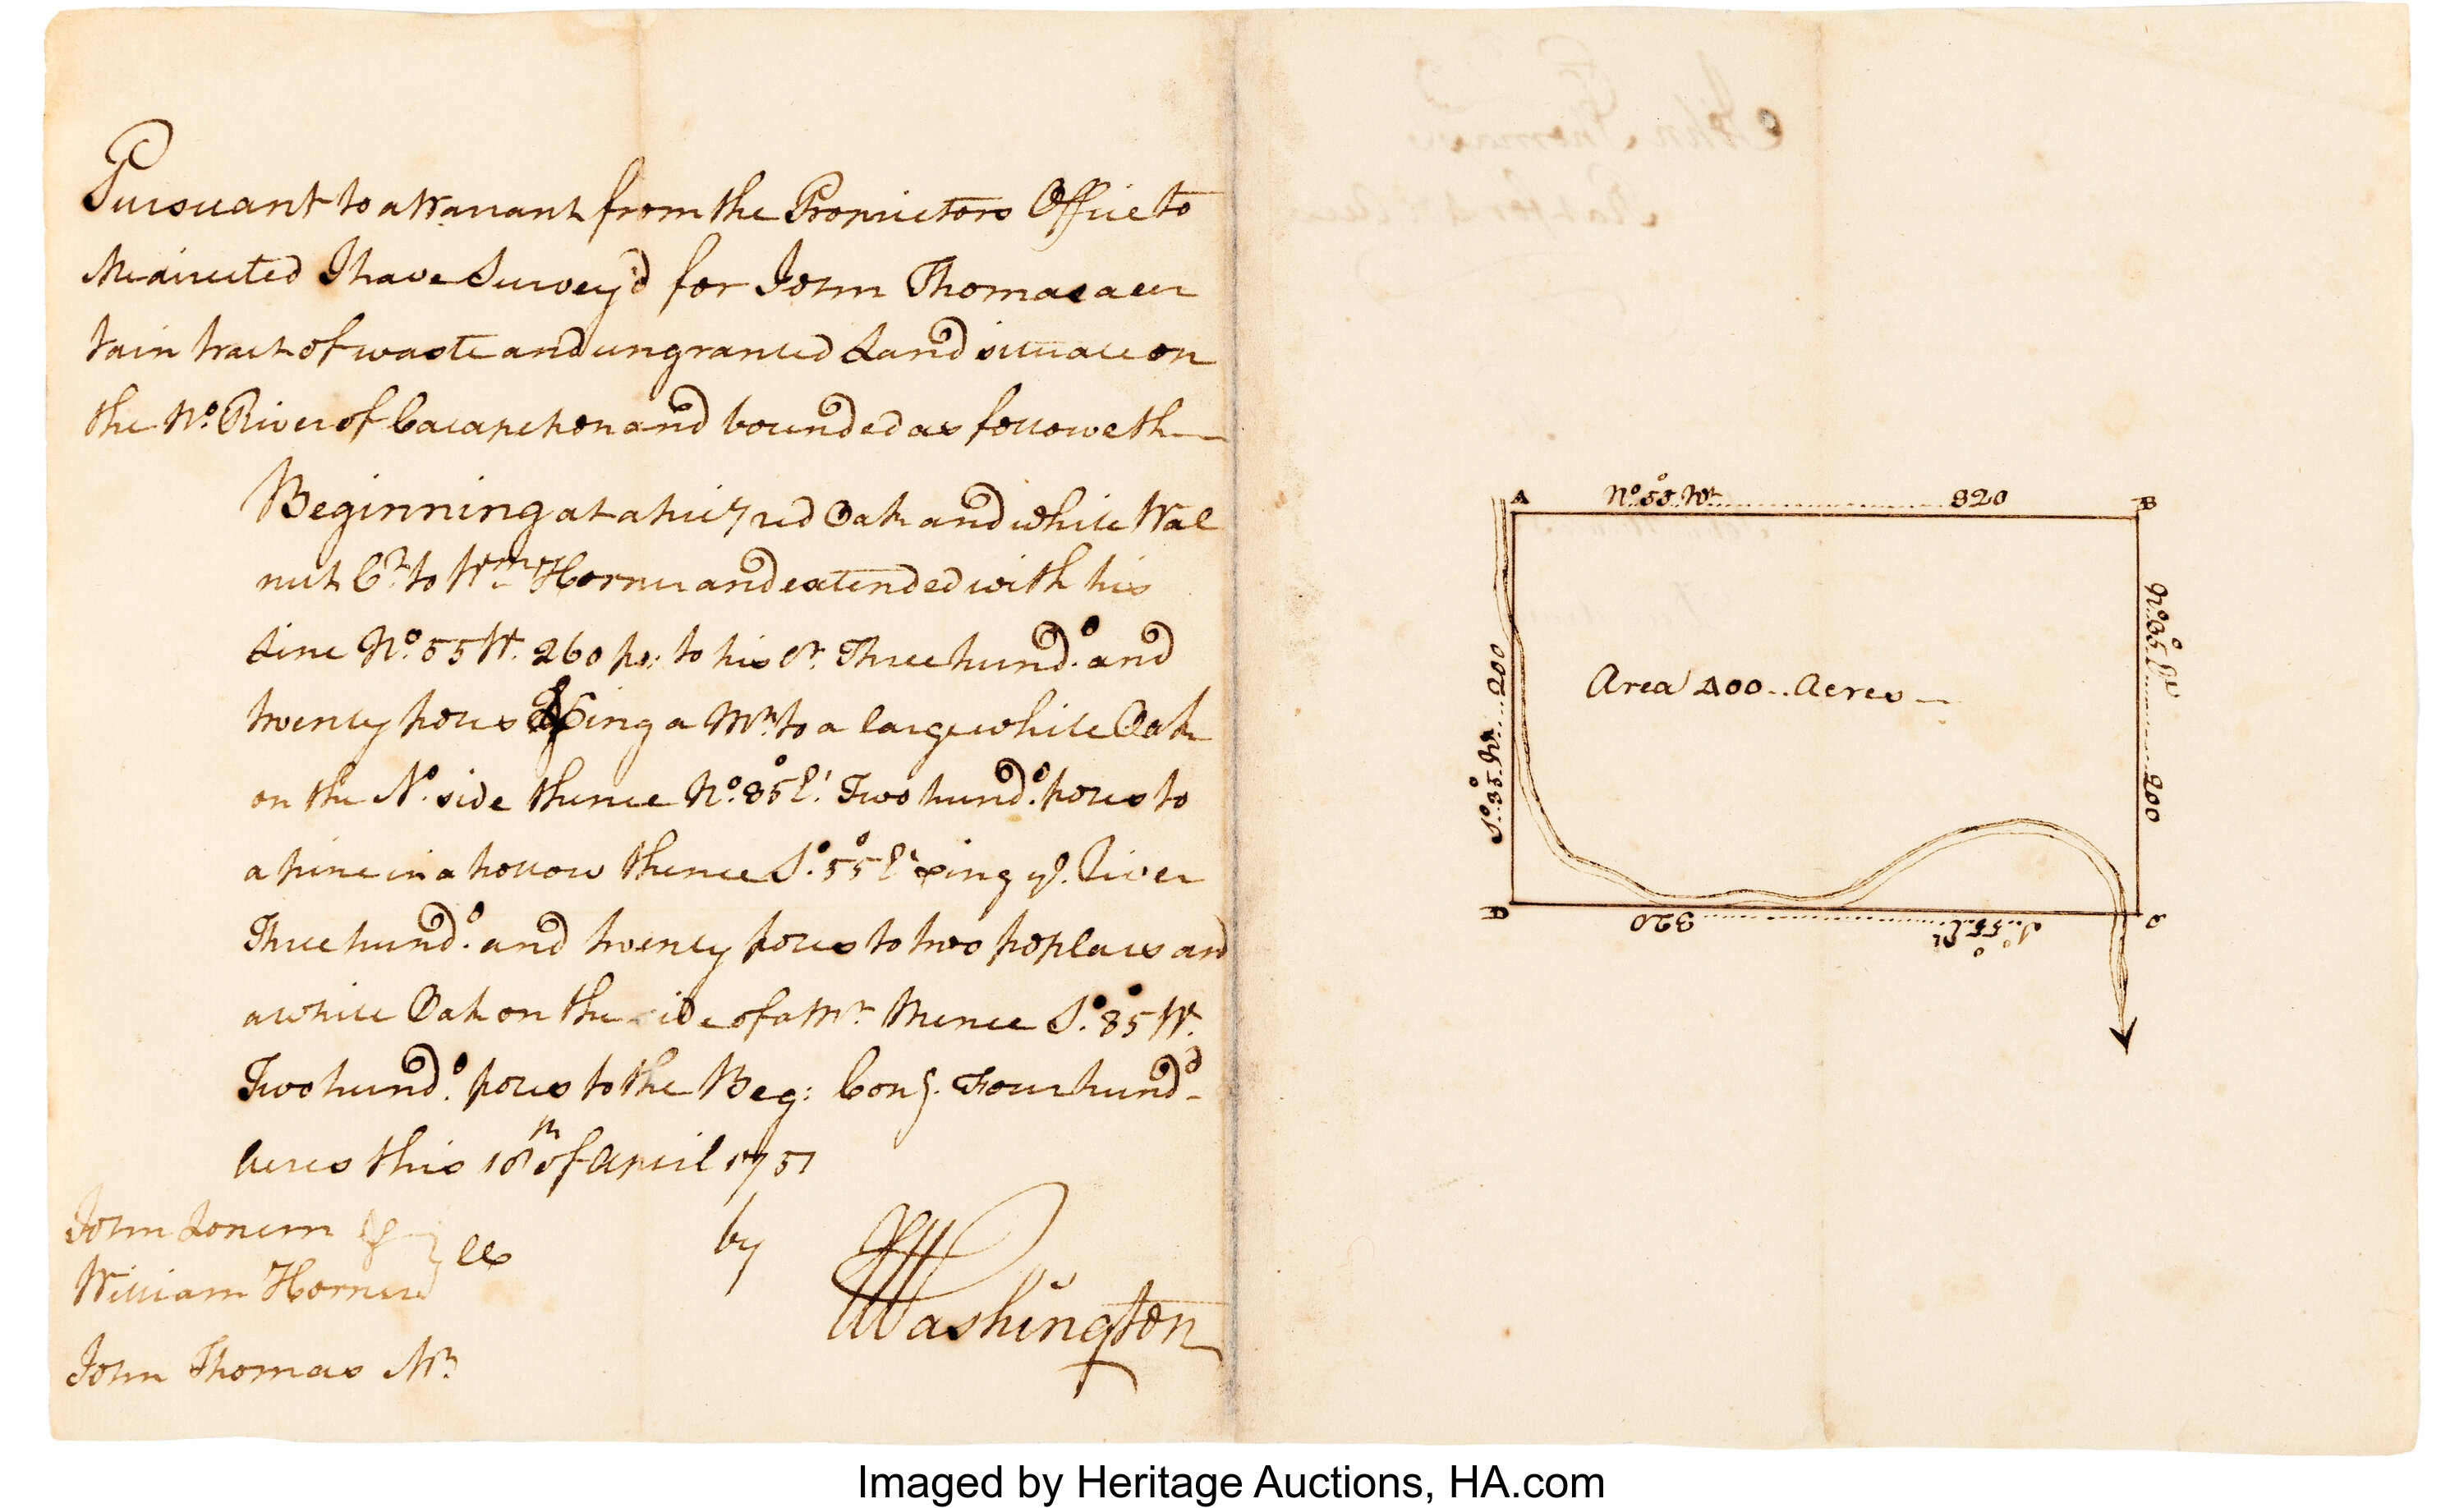 Pursuant to a Warrant from the Proprietors Office to
Me directed I have Survey'd for John Thomas a cer
tain tract of waste and ungranted Land situate on
the No. River of Cacapehon and bounded as followeth
Beginning at a hic'y red Oak and white Wal
nut Cr. to Wm. Horner and extended with his
Line No. 55 W. 260 po: to his Cr. Three hund.d and
twenty poles Xing a Mn. to a large white Oak
on the N. side thence No. 35 Et. Two hund.d poles to
a pine in a hollow thence So. 55 Et Xing ye. River
Three hund.d and twenty poles to two poplars and
a white Oak on the side of a Mn. thence So. 35 W.
Two hund.d poles to the Beg: Cong. Four hundd.
Acres this 18th of April 1751
John Lonem
William Horner } CC
John Thomas Mr.
by
GWashington
John Thomas
A No. 55 Wt. 320 B
No. 35 Et. 200
So. 35 W. 200
Area 400 Acres
D 320 So. 55 Et C
Imaged by Heritage Auctions, HA.com